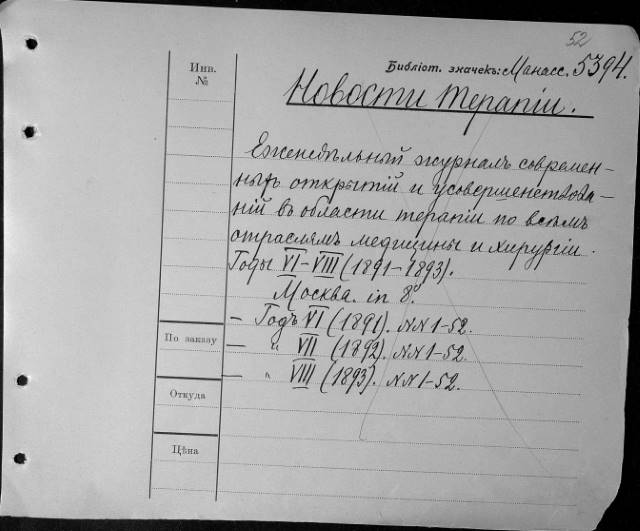 52
Инв. №
Библіот. значекъ: Манасс. 5394.
Новости терапіи.
Еженедѣльный журналъ современ-
ныхъ открытій и усовершенствова-
ній въ области терапіи по всѣмъ
отраслямъ медицины и хирургіи.
Годы VI-VIII (1891-1893).
Москва. in 8°.
- Годъ VI (1891). NN 1-52.
- " VII (1892). NN 1-52.
- " VIII (1893). NN 1-52.
По заказу
Откуда
Цѣна